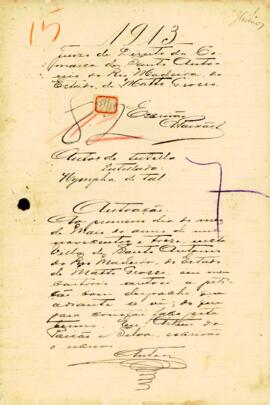 15
1913
Juizo de Direito da Co-
marca de Santo Anto-
nio do Rio Madeira, do
Estado de Matto Grosso
82
Escrivão
Autos de tutella
Tutellada
Nympha de Tal.
Autoação
Ao primeiro dia do mez
de Maio do anno de mil
novecentos e treze, nesta
Villa de Santo Antonio
do Rio Madeira, do Estado
de Matto Grosso, em meu
cartorio autoei a peti-
ção com despacho que
adiante se vê; do que
para constar faço este
termo. Eu,
e Silva, escrivão
o escrevi.